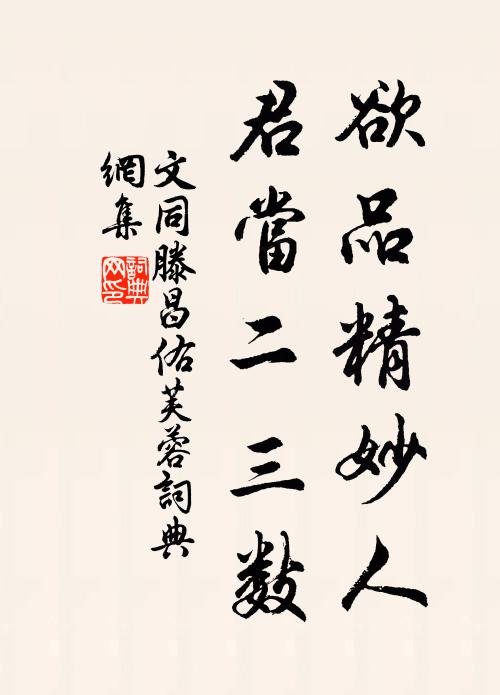 欲品精妙人
君當二三数
文同滕昌佑芙蓉詞典
網集
詞典網印